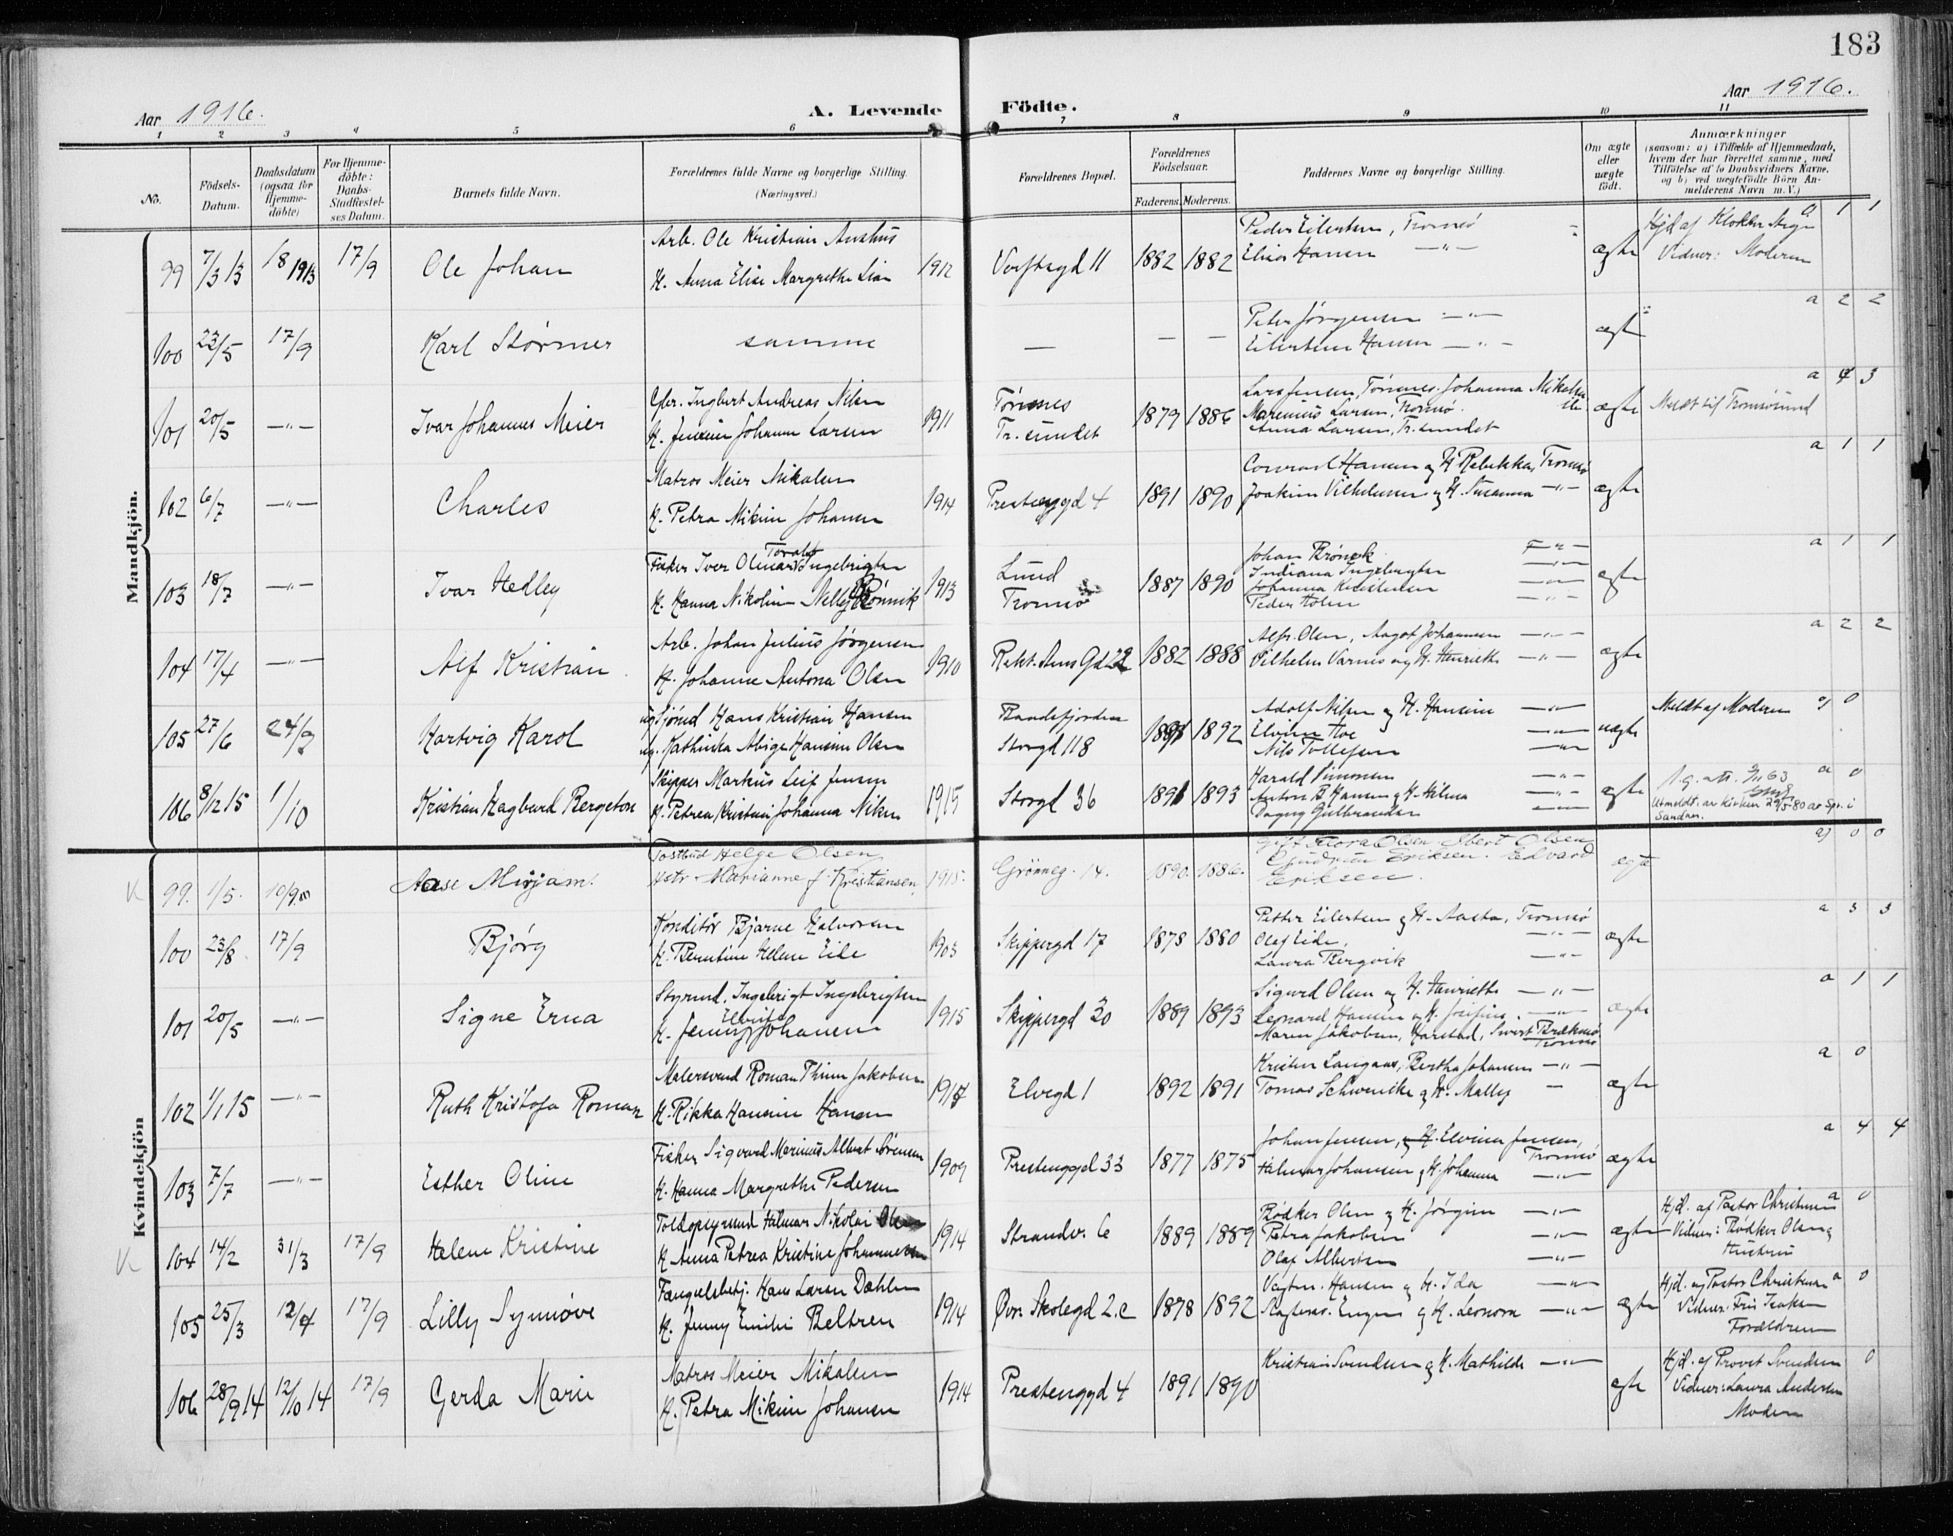 183
Aar 1916.
A. Levende Födte.
Aar 1916.
1 2 3 4 5 6 7 8 9 10 11
No.
Födsels-Datum.
Daabsdatum (ogsaa for Hjemme-döbte)
For Hjemme-döbte: Daabs-Stadfæstel-ses Datum.
Barnets fulde Navn.
Forældrenes fulde Navne og borgerlige Stilling. (Næringsvei.)
Forældrenes Bopæl.
Forældrenes Födselsaar.
Faderens. Moderens.
Faddernes Navne og borgerlige Stilling.
Om ægte eller uægte födt.
Anmærkninger
(saasom: a) i Tilfælde af Hjemmedaab,
hvem der har forrettet samme, med
Tilföielse af to Daabsvidners Navne,
og b) ved uægtefödte Börn An-
melderens Navn m. V.)
Mandkjön.
99 7/3 13 1913 17/9 Ole Johan
Arb. Ole Kristian
H. Anna Elise Margrethe Lian 1912
Verftsgd 11 1882 1882
Peder Eilertsen, Tromsø
Hansen —"—
ægte
Hjd af Klokker
Vidner: Moderen
a 1 1
100 23/5 17/9 Karl Størmer
samme
— — —
Peter Jørgensen —"—
Eilertine Hansen —"—
ægte
a 2 2
101 20/5 —"— Ivar Johannes Meier
Ingbert Andreas Nilsen
H. Johanna Larsen 1911
Tønsnes
Tr. sundet 1879 1886
Lars Jensen, Tønsnes. Johanna Mikalsen
Marenius Larsen, Tromsø.
Anna Larsen, Tr. sundet
ægte
Meldt til Tromsøsund
a 4 3
102 6/7 —"— Charles
Matros Meier Mikalsen
H. Petra Mikine Johansen 1914
Prestenggd 4 1891 1890
Conrad Hansen og H. Rebekka, Tromsø
Joakim Vilhelmsen og H. Susanna —"—
ægte
a 1 1
103 18/7 —"— Ivar Hedley
Toralf
Fisker Iver Olinar Ingebrigtsen
H. Hanna Nikoline Nelly Rönnik 1913
Lund
Tromsø 1887 1890
Johan
Indiana Ingebrigtsen —"—
Johanna Kristensen —"—
Peder Holm —"—
ægte
a 1 1
104 17/4 —"— Alf Kristian
Arb. Johan Julius Jørgensen
H. Johanne Antona Olsen 1910
Rekt. Aars Gd 22 1882 1888
Alfr. Olsen, Aagot Johannessen —"—
Vilhelm Varnes og H. Henriette —"—
ægte
a 2 2
105 27/6 24/9 Hartvig Karol
Hans Kristian Hansen
ug. Kathinka Abigael Hansine Olsen
Storgd 118 1892
Adolf Nilsen og H. Hansine —"—
Elvine Hoe —"—
Nils Tollefsen —"—
uægte
Meldt af Moderen
a) 0
106 8/12 15 1/10 Kristian Hagbard Bergeton
Skipper Markus Leif Jensen
H. Petrea Kristine Johanna Nilsen 1915
Storgd 36 1891 1893
Harald Simonsen —"—
Anton B. Hansen og H. Hilma —"—
Dagny Gulbrandsen —"—
ægte
Utmeldt av kirken 29/5-80
a 0
Kvindekjön
99. 1/5. 10/9 Aase Mirjam.
Postbud Helge Olsen
Hstr Marianne f. Kristiansen. 1915.
Grönneg. 14. 1890. 1886.
Flora Olsen. Olsen
Gudrun Eriksen. Edvard
Eriksen.
ægte
a) 0 0
100 23/8 17/9 Bjørg
Konditor Bjarne Halvorsen
H. Berntine Helene Eide 1903
Skippergd 17 1878 1880
Petter Eilertsen og H. Aasta, Tromsø
Olaf Eide, —"—
Laura Bergvik —"—
ægte
a 3 3
101 20/5 —"— Signe Erna
Styrmd. Ingebrigt Ingebrigtsen
H. Jenny Johansen 1915
Skippergd 30 1889 1893
Sigurd Olsen og H. Henriette —"—
Leonard Hansen og H. Josefine. —"—
Maren Jakobsen, Harstad,
Tromsø
ægte
a 1 1
102 1/1 15 —"— Ruth Kristofa Roman
Malersvend Roman Thim Jakobsen
H. Rikka Hansine Hansen
Elvegd 1 1892 1891
Kristine Langaas, Bertha Johansen —"—
Tomas Schwencke og H. Mally —
ægte
a 0
103 7/7 —"— Esther Oline
Fisker Sigvard Marinius Albert Sörensen
H. Hanna Margrethe Pedersen 1909
Prestenggd 33 1877 1875
Johan Jensen, og H. Elvina Jensen,
Tromsø
Hilmar Johansen og H. Johanna —"—
ægte
a 4 4
104 14/2 31/3 17/9 Helene Kristine
Toldopsynsmd Hilmar Nikolai Olsen
H. Anna Petrea Kristine Johannessen 1914
Strandv. 6 1889 1889
Rödker Olsen og H. Jørgine —"—
Petra Jakobsen —"—
Olaf Albertsen —"—
ægte
Hjd. af Pastor Christensen
Vidner: Rödker Olsen og
Hustru
a 0
105 25/3 17/9 Lilly Synnöve
Fængselsbetj. Hans Larsen Dahlen
H. Jenny Emilie Beltzen 1914
Övr. Skolegd 2.c 1878 1892
Hansen og H. Ida —"—
Engen og H. Leonora —"—
ægte
Hjd. af Pastor Christensen
Vidner: Frk Isaksen
Forældrene
a 0
106 28/9 14 12/10 14 17/9 Gerda Marie
Matros Meier Mikalsen
H. Petra Mikine Johansen 1914
Prestenggd 4 1891 1890
Kristian Svendsen og H. Mathilde —"—
ægte
Hjd. af Provst Svendsen
Vidner: Laura Andersen
Moderen
0